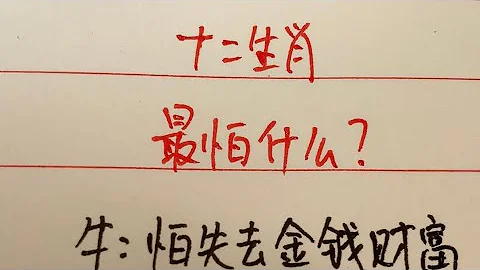 十二生肖
最怕什么?
牛:怕失去金钱财富